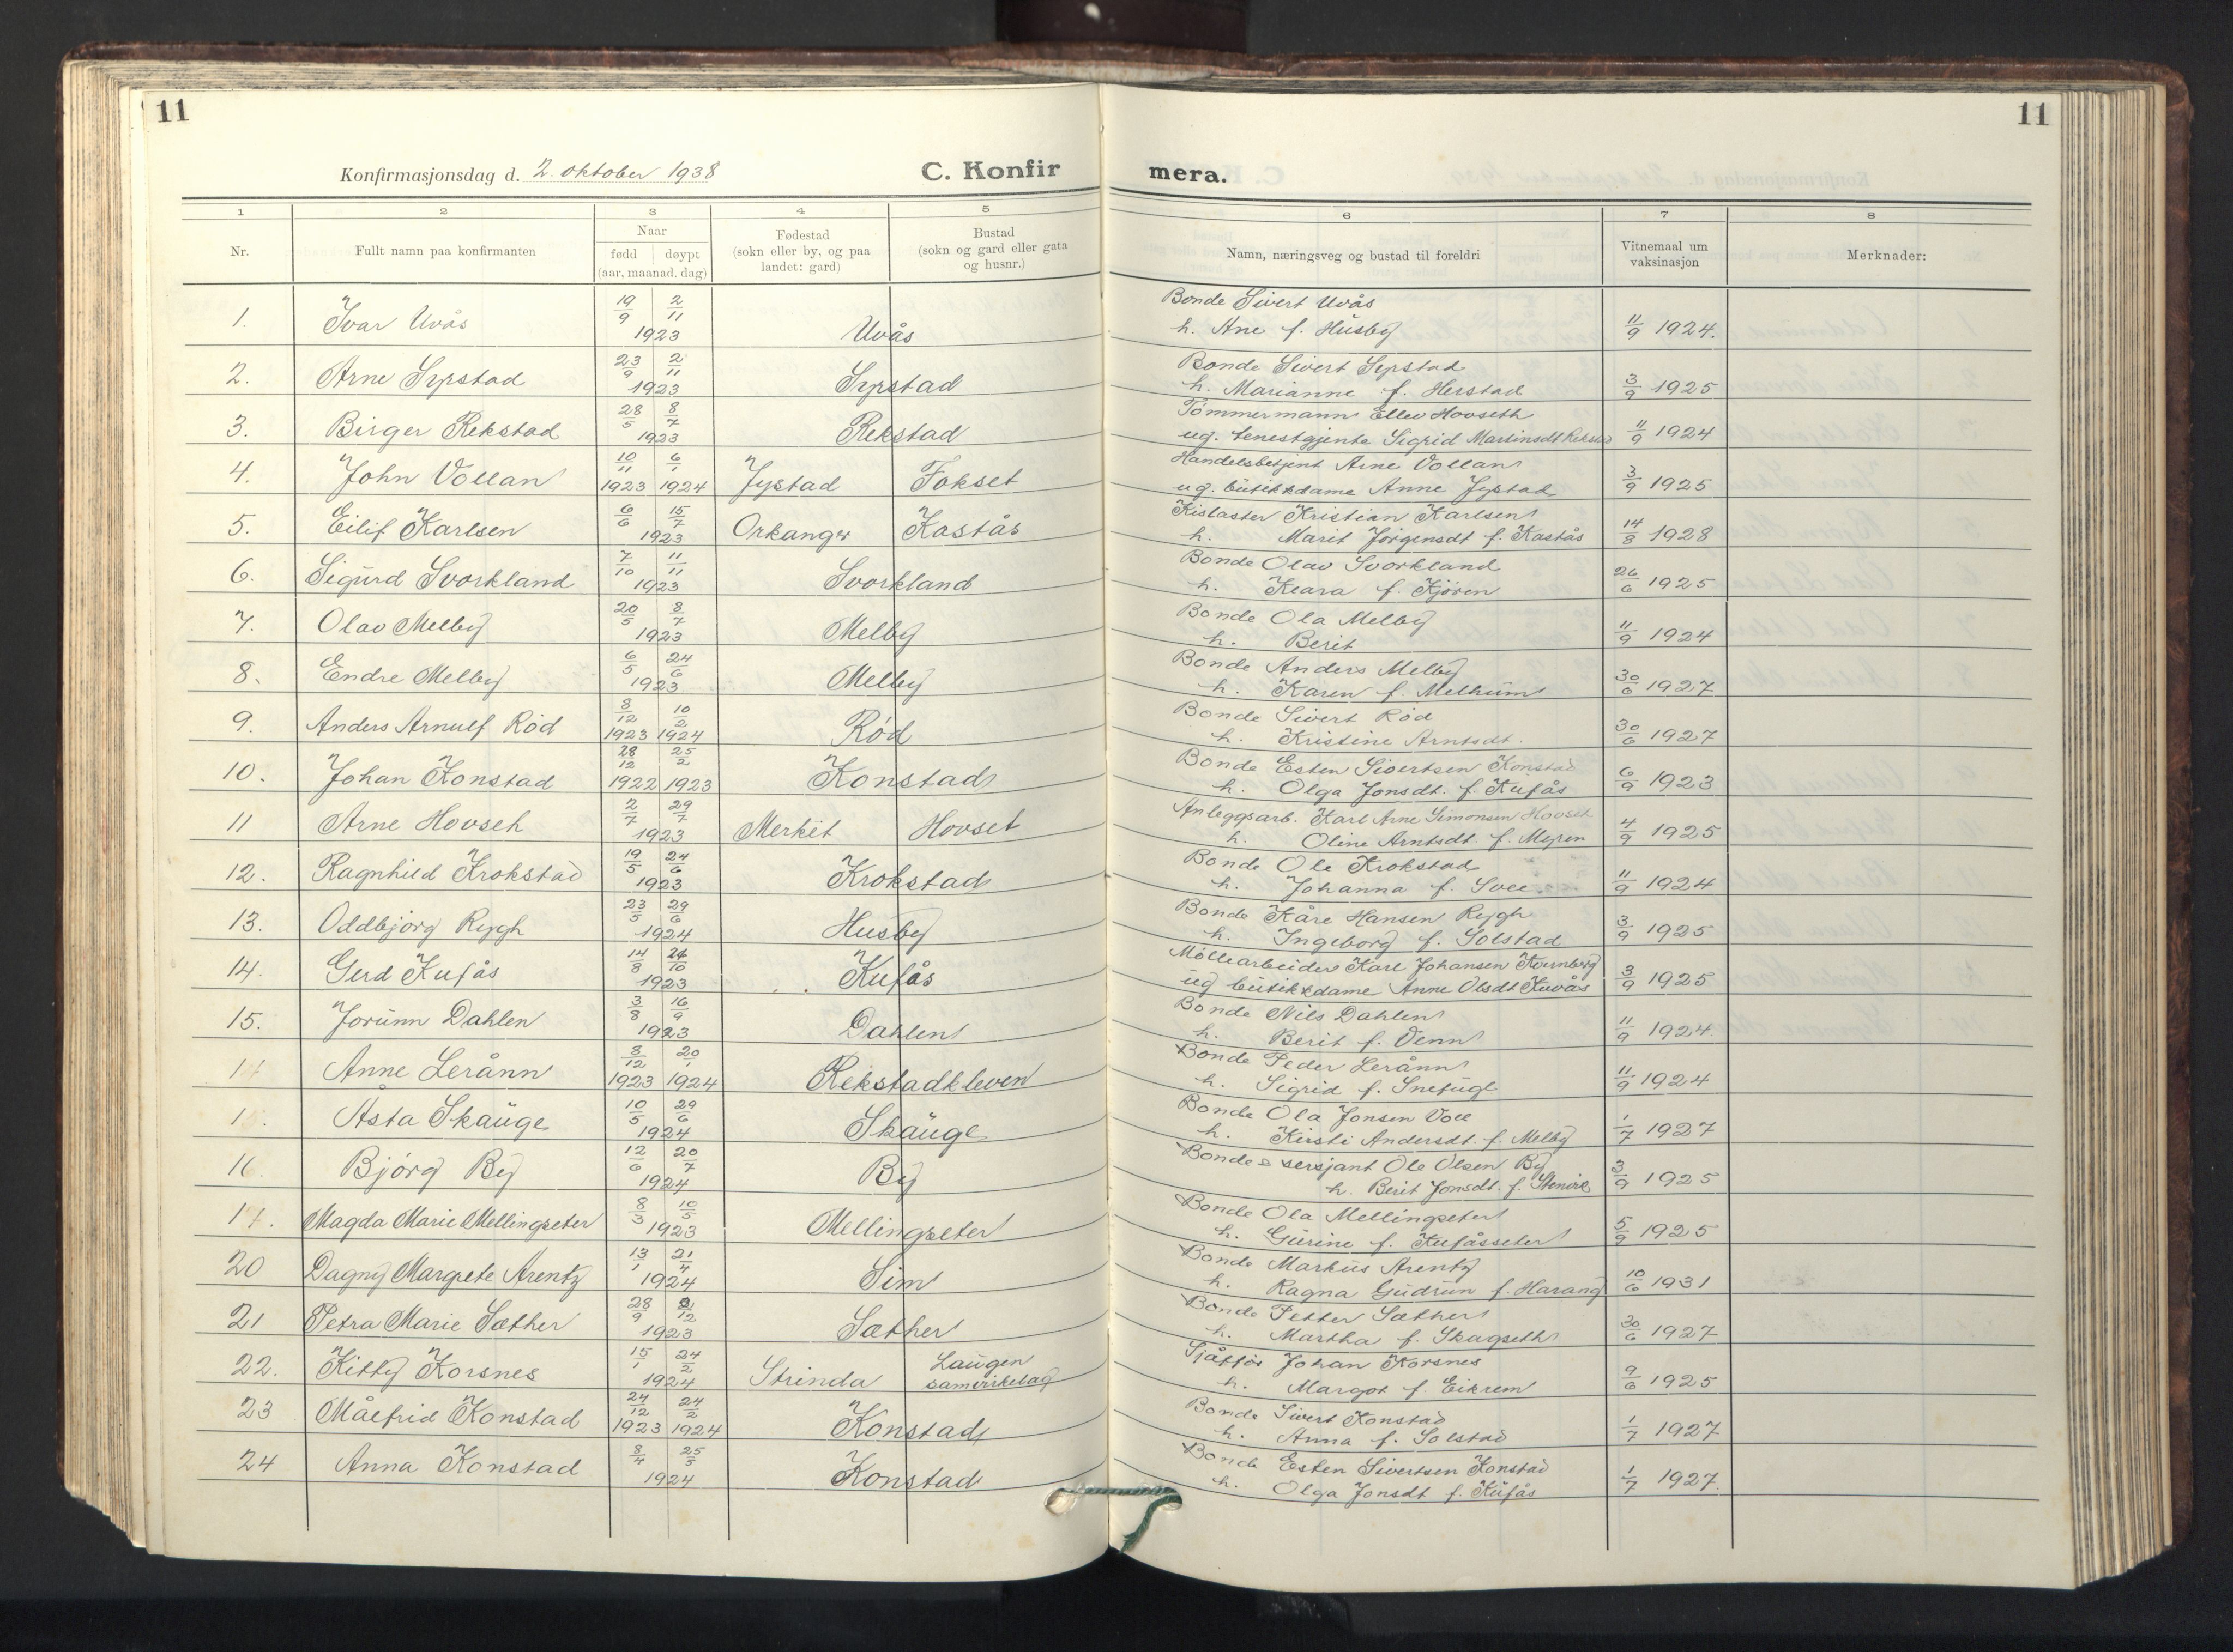 11
11
Konfirmasjonsdag d. 2. oktober 1938
C. Konfir
mera.
1 2 3 4 5 6 7 8
Nr.
Fullt namn paa konfirmanten
Naar
fødd døypt
(aar, maanad, dag)
Fødestad
(sokn eller by, og paa
landet: gard)
Bustad
(sokn og gard eller gata
og husnr.)
Namn, næringsveg og bustad til foreldri
Vitnemaal um
vaksinasjon
Merknader:
1. Ivar Uvås 19/9 2/11 1923 Uvås Bonde Sivert Uvås
h. Ane f. Husby 11/9 1924.
2. Arne Syrstad 23/9 2/11 1923 Syrstad Bonde Sivert Syrstad
h. Marianne f. Herstad 3/9 1925
3. Birger Rekstad 28/5 8/7 1923 Rekstad Tömmermann Ellev Hovseth
ug. tenestgjente Sigrid Martinsdt Rekstad 11/9 1924
4. John Vollan 10/11 1923 6/1 1924 Jystad Fokset Handelsbetjent Arne Vollan
ug. butikkdame Anne Jystad 3/9 1925
5. Eilif Karlsen 6/6 15/7 1923 Orkanger Kastås Kislaster Kristian Karlsen
h. Marit Jörgensdt f. Kastås 14/8 1928
6. Sigurd Svorkland 7/10 11/11 1923 Svorkland Bonde Olav Svorkland
h. Klara f. Kjören 26/6 1925
7. Olav Melby 20/5 8/7 1923 Melby Bonde Ola Melby
h. Berit 11/9 1924
8. Endre Melby 6/5 24/6 1923 Melby Bonde Anders Melby
h. Karen f. Melhum 30/6 1927
9. Anders Arnulf Röd 8/12 1923 10/2 1924 Röd Bonde Sivert Röd
h. Kristine Arntsdt. 30/6 1927
10. Johan Konstad 28/12 1922 25/2 1923 Konstad Bonde Esten Sivertsen Konstad
h. Olga Jonsdt. f. Kufås 6/9 1923
11 Arne Hovseh 2/7 29/7 1923 Merkit Hovset Anleggsarb. Karl Arne Simonsen Hovset
h. Oline Arntsdt. f. Myren 4/9 1925
12. Ragnhild Krokstad 19/5 24/6 1923 Krokstad Bonde Ole Krokstad
h. Johanna f. Voll 11/9 1924
13. Oddbjörg Rygh 23/5 29/6 1924 Husby Bonde Kåre Hansen Rygh
h. Ingeborg f. Solstad 3/9 1925
14. Gerd Kufås 14/8 /10 1923 Kufås Möllearbeider Karl Johansen Kvernberg
ug butikkdame Anne Olsdt Kuvås 3/9 1925
15. Jorunn Dahlen 3/8 16/9 1923 Dahlen Bonde Nils Dahlen
h. Berit f. Venn 11/9 1924.
1 Anne Lerånn 8/12 1923 20/1 1924 Rekstadkleven Bonde Peder Lerånn
h. Sigrid f. Snefugl 11/9 1924
1 Åsta Skauge 10/5 29/6 1924 Skauge Bonde Ola Jonsen Voll
h. Kirsti Andersdt. f. Melby 1/7 1927
16. Bjórg By 12/6 20/7 1924 By Bonde & sersjant Ole Olsen By
h. Berit Jonsdt. f. 3/9 1925
1 . Magda Marie Mellingseter 8/3 10/5 1923 Mellingseter Bonde Ola Mellingseter
h. Gurine f. Kufåsseter 5/9 1925
20 Dagny Margrete Arentz 13/1 21/4 1924 Sim Bonde Markus Arentz
h. Ragna Gudrun f. Harang 10/6 1931
21 Petra Marie Sæther 28/9 2/12 1923 Sæther Bonde Petter Sæther
h. Martha f. Skagseth 30/6 1927
22. Kitty Korsnes 15/1 24/2 1924 Strinda Laugen
samvirkelag Sjåfför Johan Korsnes
h. Margot f. Eikrem 9/6 1925
23 Målfrid Konstad 24/12 1923 24/2 1924 Konstad Bonde Sivert Konstad
h. Anna f. Solstad 1/7 1927
24 Anna Konstad 8/4 25/5 1924 Konstad Bonde Esten Sivertsen Konstad
h. Olga Jonsdt f. Kufås 1/7 1927.